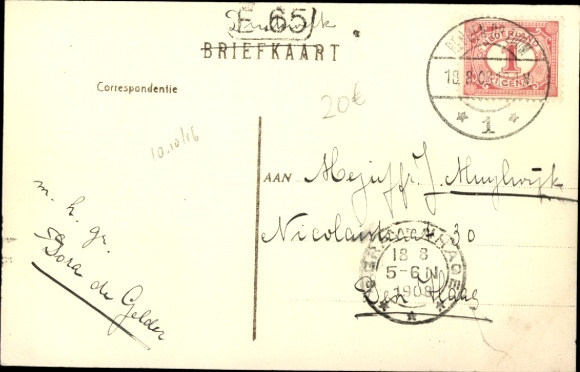 E 65/
Drukwerk
BRIEFKAART
Correspondentie
20€
10.10/16
NEDERLAND
1
CENT
1
AAN Mejuffr. J. Muylwijk
Nicolaistraat 30
Den Haag
'S GRAVENHAGE
18 8
5-6 N
1908
m. h. gr.
Dora de Gelder